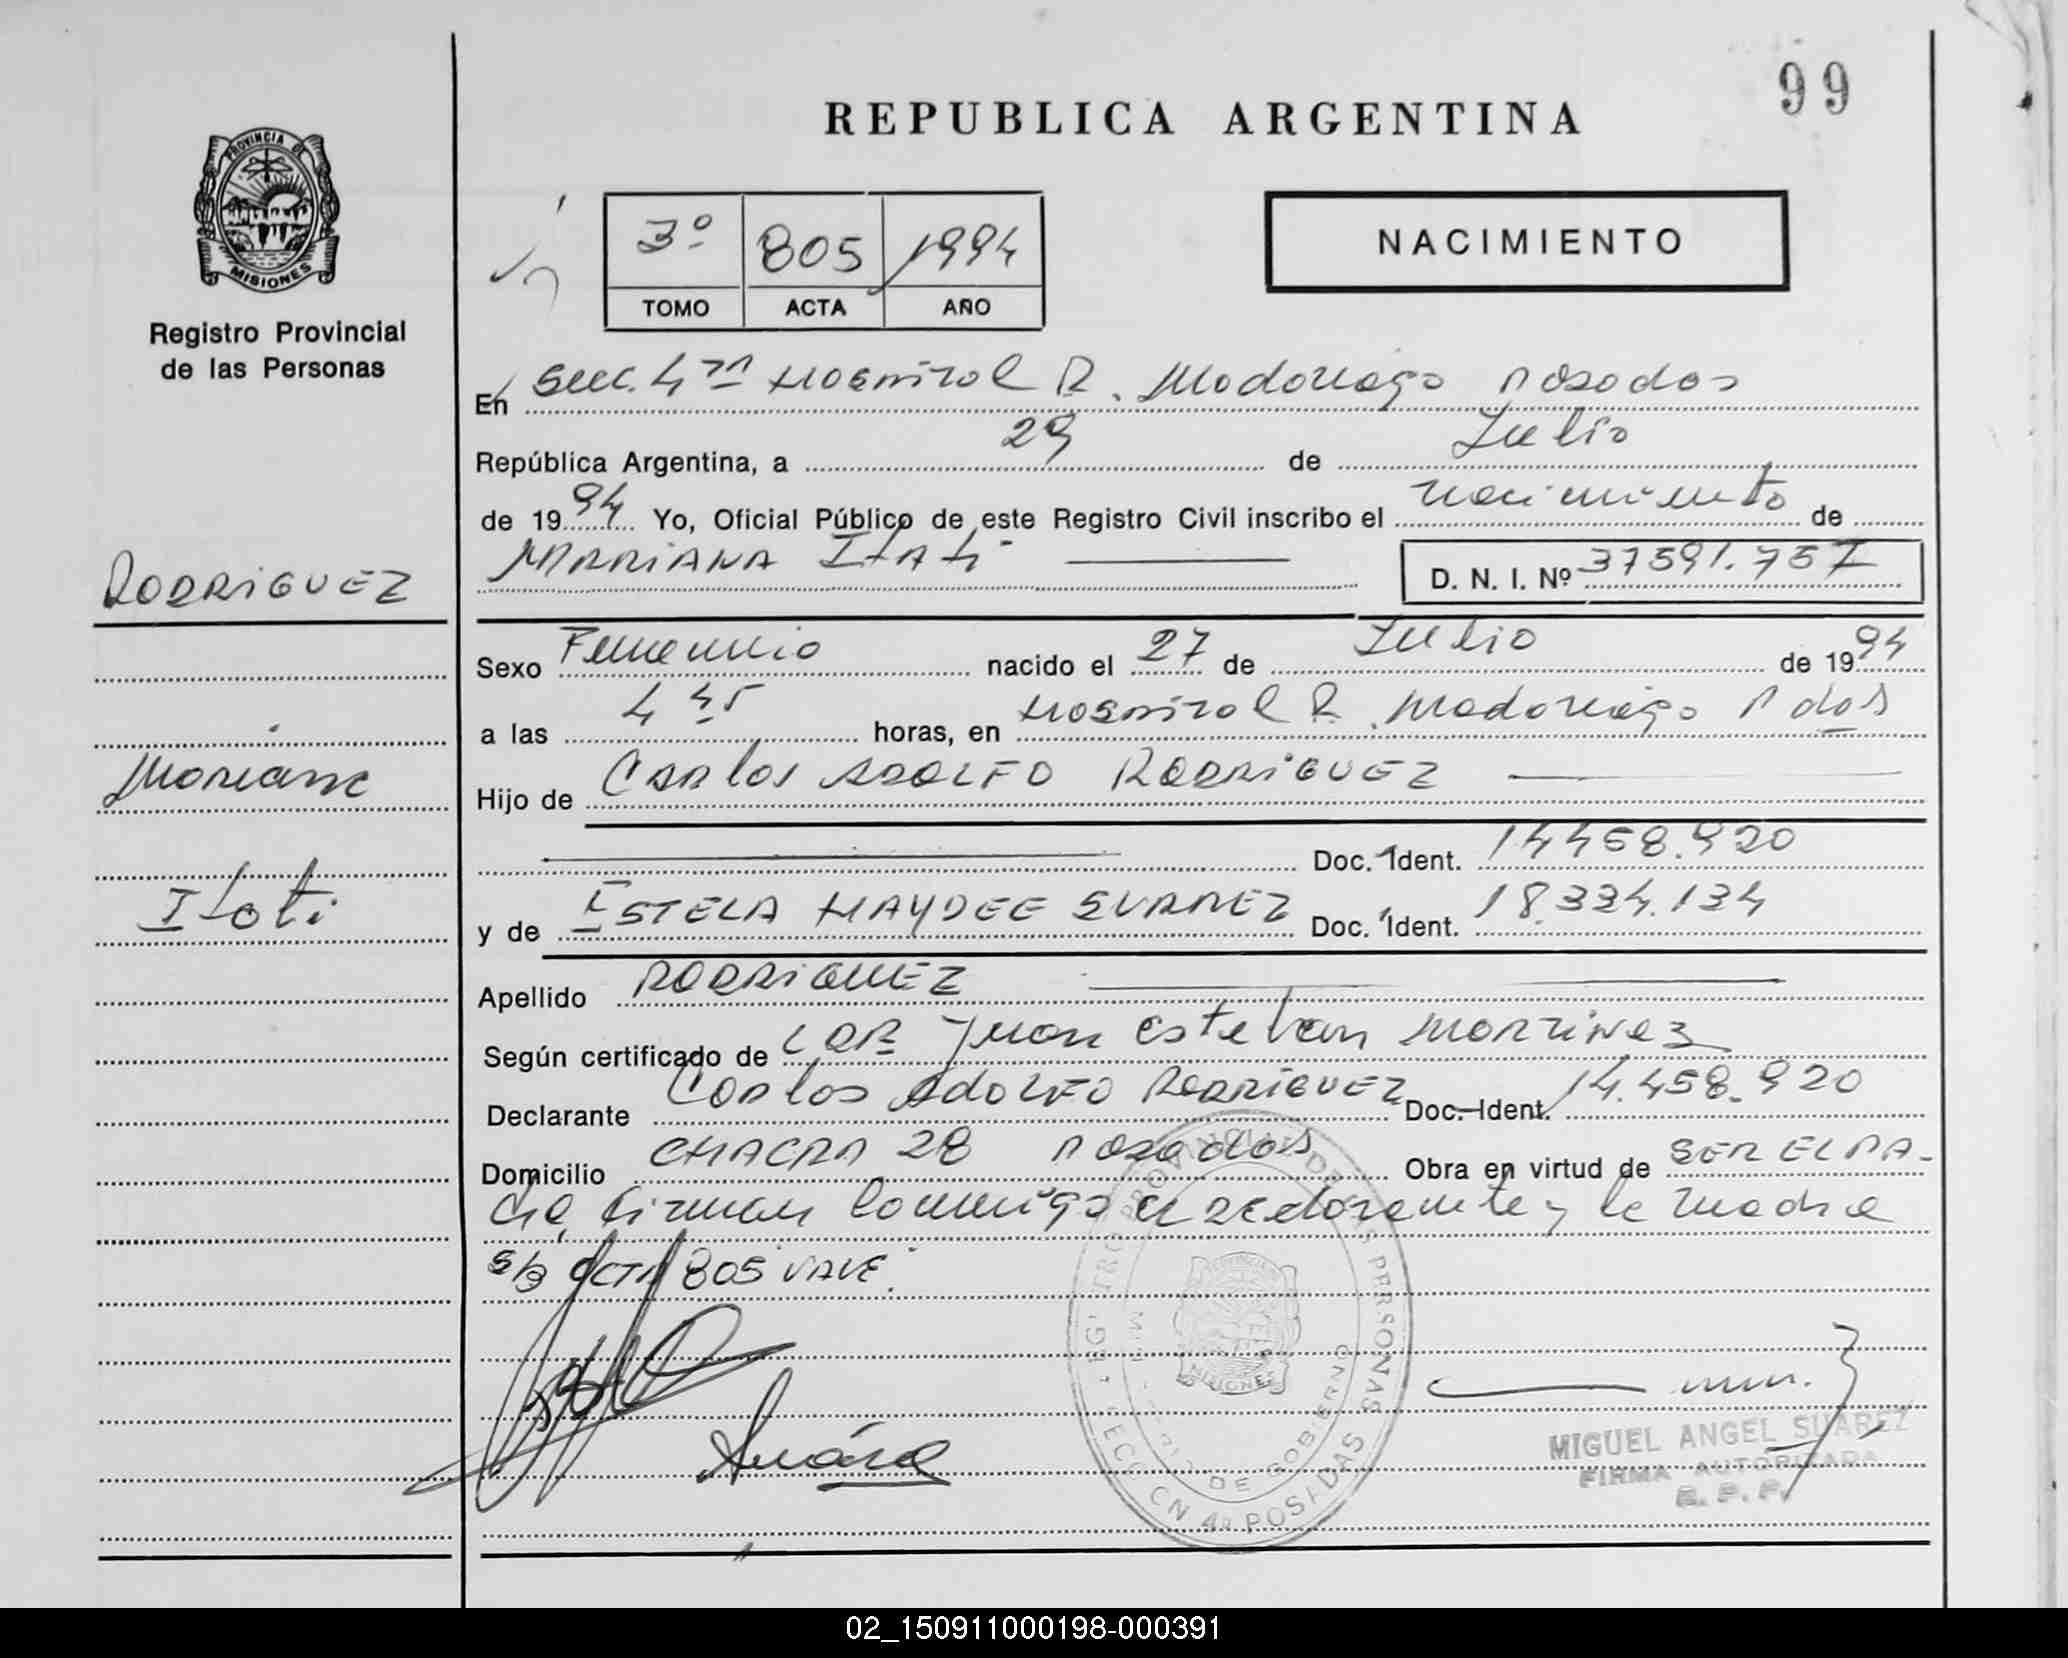 99
REPUBLICA ARGENTINA
PROVINCIA DE
MISIONES
Registro Provincial
de las Personas
3º 805 1994
TOMO ACTA AÑO
NACIMIENTO
En Secc. 4ta Hospital R. Madariaga Posadas
República Argentina, a 29 de Julio
de 1994 Yo, Oficial Público de este Registro Civil inscribo el nacimiento de
MARIANA ITATI D. N. I. Nº 37591.757
RODRIGUEZ
Mariana
Itati
Sexo Femenino nacido el 27 de Julio de 1994
a las 4 45 horas, en Hospital R. Madariaga Pdas
Hijo de CARLOS ADOLFO RODRIGUEZ
Doc. Ident. 14458.920
y de ESTELA HAYDEE SUAREZ Doc. Ident. 18.334.134
Apellido RODRIGUEZ
Según certificado de Juan Estevan Martinez
Declarante Carlos ADOLFO RODRIGUEZ Doc. Ident. 14.458.920
Domicilio CHACRA 28 Posadas Obra en virtud de SER EL PA-
dre, firman conmigo el declarante y la madre
s/b ACTA 805 VALE.
Suárez
MIGUEL ANGEL SUAREZ
FIRMA AUTORIZADA
R. P. P.
02_150911000198-000391